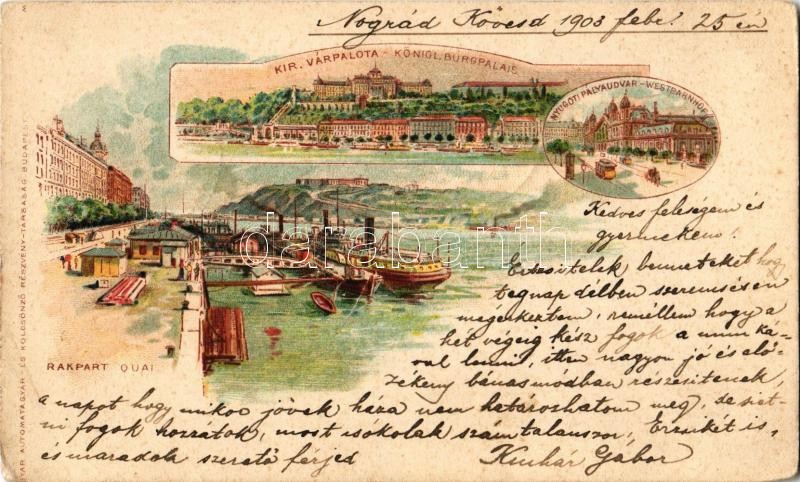 Nográd Kövesd 1903 febr. 25 én
KIR. VÁRPALOTA - KÖNIGL. BURGPALAIS
NYUGOTI PÁLYAUDVAR - WESTBAHNHOF
darabanth
Kedves feleségem és
gyermekem!
Értesitelek benneteket hogy
tegnap délben szerencsésen
megérkeztem, remélem hogy a
hét végeig kész fogok a munká-
val lenni, itten nagyon jó és elő-
zékeny bánásmódban részesitenek,
a napot hogy mikor jövök háza nem határozhatom meg, de siet-
ni fogok hozzátok, most csókolak számtalanszor, Erzsikét is,
és maradok szerető férjed Gábor
RAKPART QUAI
AUTOMATAGYÁR ÉS KÖLCSÖNZŐ RÉSZVÉNY-TÁRSASÁG BUDAPEST